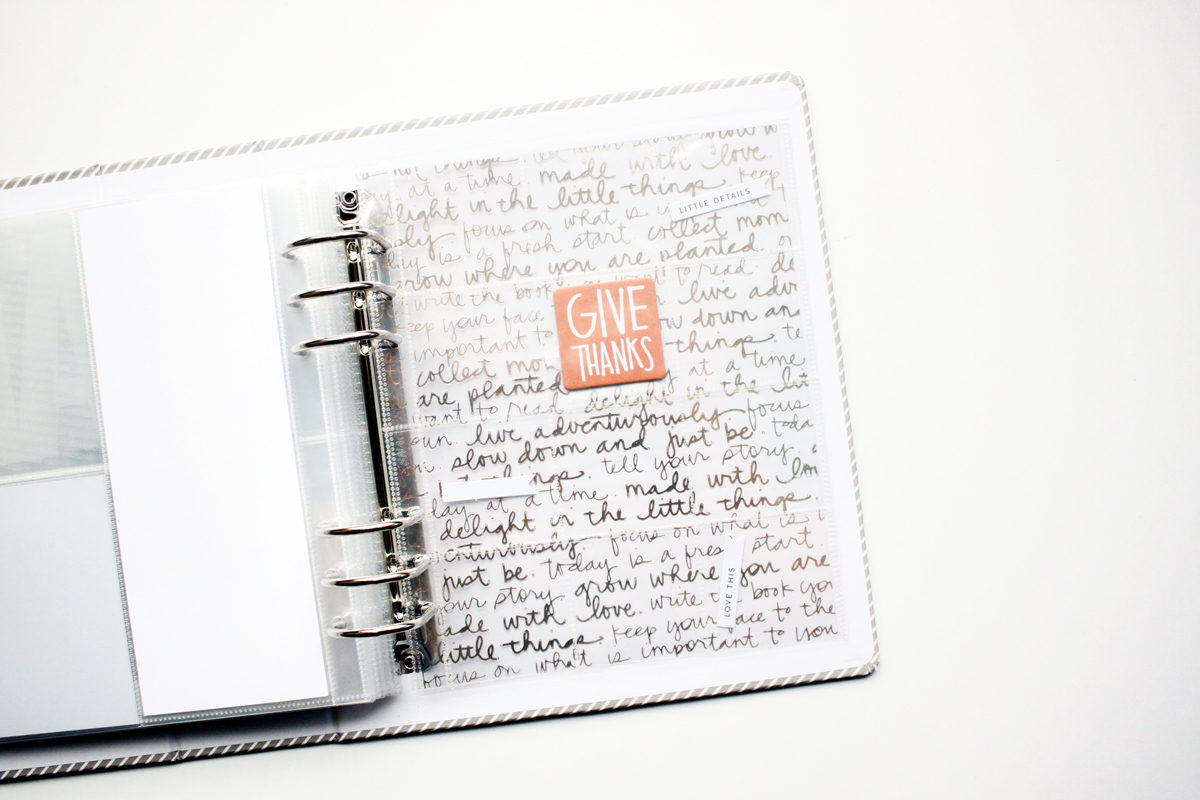 your story. grow w
at a time made with love.
delight in the little things. keep
LITTLE DETAILS
focus on what is
day is a fresh start collect mom
grow where you are planted. or
write the book you want to read. de
live adv
GIVE
THANKS
keep your face
w down an
important to
things. te
collect mom
at a time
are planted
want to read delight in the lit
un. live adventurously. focus
slow down and just be. toda
things. tell your story.
day at a time. made with lov
delight in the little things.
adventurously. focus on what is i
just be. today is a fresh start.
LOVE THIS
your story. grow where you are
made with love. write t book you
little things. keep your face to the
focus on what is important to you